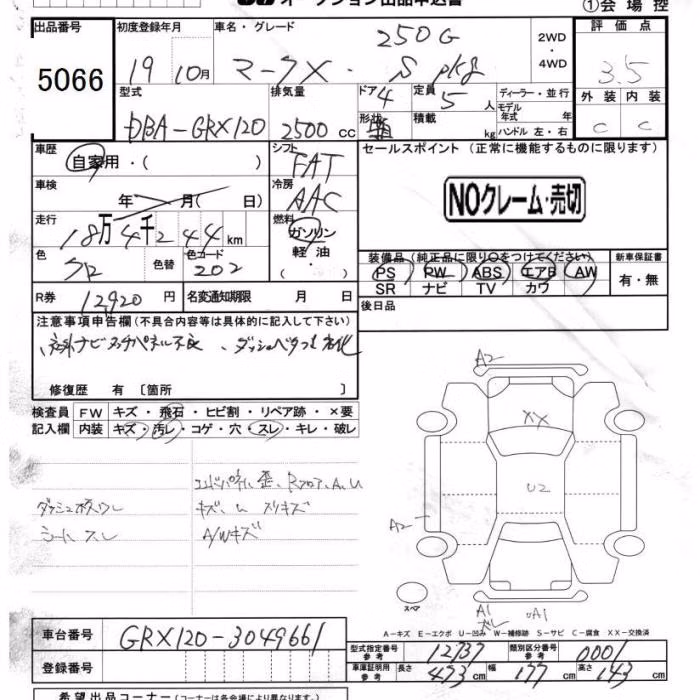 オークション出品申込書
①会場控
出品番号
5066
初度登録年月
19 10月
車名・グレード
250G
マークX・S pkg
2WD
・
4WD
評価点
3.5
外装 内装
C C
型式
DBA-GRX120
排気量
2500 cc
ドア 4
形状
定員 5 人
積載 kg
ディーラー・並行
モデル年式 年
ハンドル 左・右
車歴
自家用・( )
シフト
FAT
車検
年 月( 日)
冷房
AAC
走行
18万4千244km
燃料
ガソリン
軽油
・
色
クロ
色替
色コード
202
R券 12920 円
名変通知期限 月 日
セールスポイント(正常に機能するものに限ります)
NOクレーム・売切
装備品(純正品に限り○をつけてください)
PS PW ABS エアB AW
SR ナビ TV カワ
新車保証書
有・無
後日品
注意事項申告欄(不具合内容等は具体的に記入して下さい)
社外ナビタッチパネル不良、ダッシュベタつき劣化
修復歴 有 〔箇所 〕
検査員 FW キズ・飛石・ヒビ割・リペア跡・×要
記入欄 内装 キズ・汚レ・コゲ・穴・スレ・キレ・破レ
エンドパネル歪、Rフロア A、U
キズ、
スリキズ
シート スレ
A/Wキズ
A2
XX
U2
A2
A1
ズレ
UA1
スペア
A-キズ E-エクボ U-凹み W-補修跡 S-サビ C-腐食 XX-交換済
車台番号
GRX120-3049661
登録番号
型式指定番号 参考
12737
類別区分番号 参考
0001
車庫証明用 参考
長さ 473cm
幅 177cm
高さ 143cm
希望出品コーナー(コーナーは各会場により異なります。)